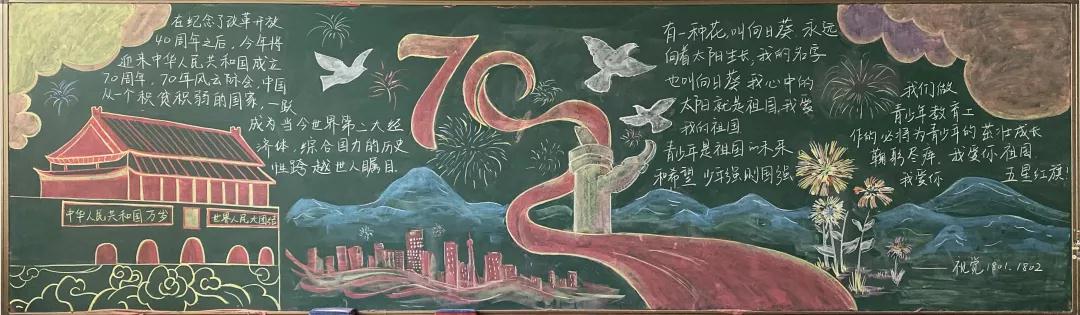 在纪念了改革开放
40周年之后，今年将
迎来中华人民共和国成立
70周年，70年风云际会，中国
从一个积贫积弱的国家，一跃
成为当今世界第二大经
济体，综合国力的历史
性跨越世人瞩目.
中华人民共和国万岁
世界人民大团结
70
有一种花,叫向日葵 永远
向着太阳生长,我的名字
也叫向日葵 我心中的
太阳就是祖国,我爱
我的祖国
青少年是祖国的未来
和希望 少年强则国强
我们做
青少年教育工
作的必将为青少年的茁壮成长
鞠躬尽瘁. 我爱你 祖国.
我爱你 五星红旗!
——视觉1801.1802